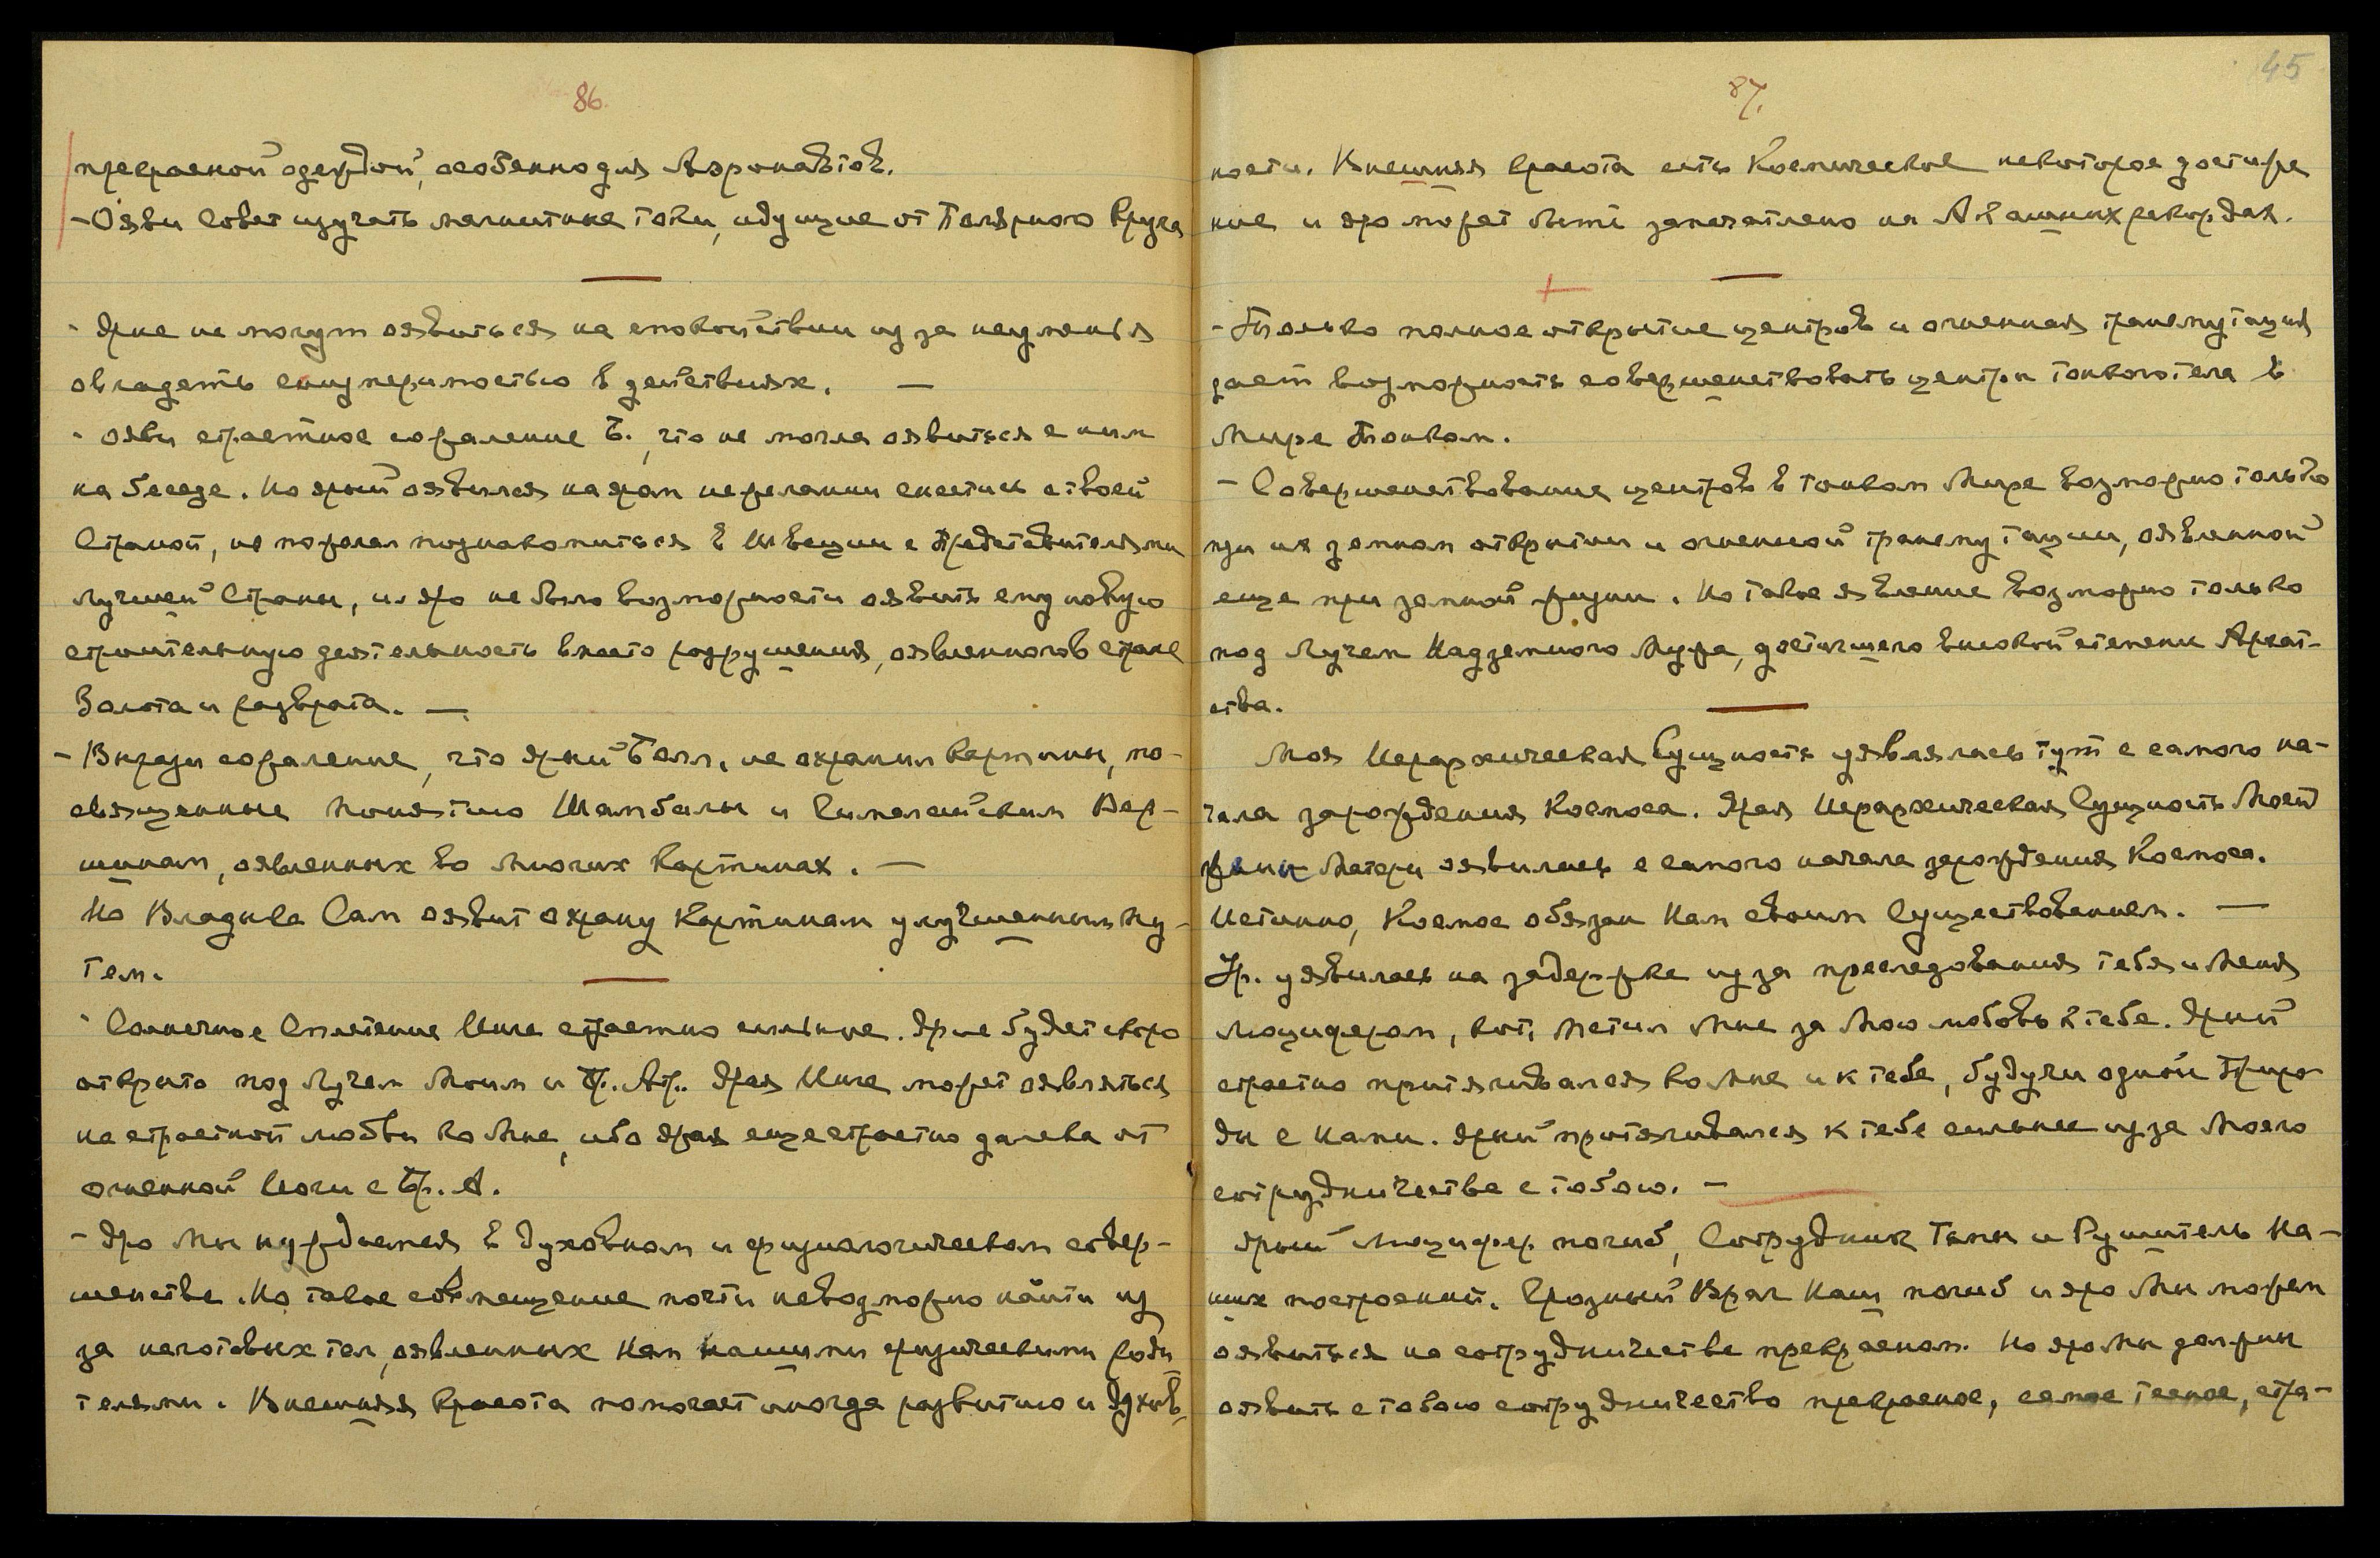 86.
прекрасной одеждой, особенно для Аэронавтов.
- Ояви Совет изучать магнитные токи, идущие от Полярного Круга
- Ярые не могут оявиться на спокойствии из за неумения
овладеть соизмеримостью в действиях. —
- ояви страстное сожаление Б., что не могла оявиться с ним
на беседе. Но ярый оявился на яром нежелании снестись с твоей
Страной, не пожелал познакомиться в Швеции с Представителями
лучшей Страны, и яро не было возможности оявить ему новую
строительную деятельность вместо разрушения, оявленного в стране
Золота и разврата. —
- Вырази сожаление, что ярый Белл. не охранил Картины, по-
священные Понятию Шамбалы и Гималайским Вер-
шинам, оявленных во многих Картинах. —
Но Владыка Сам оявит охрану Картинам улучшенным пу-
тем.
- Солнечное Сплетение Инге страстно сильное. Ярое будет скоро
открыто под Лучем Моим и Бр. Ар. Ярая Инге может оявляться
на страстной любви ко Мне, ибо ярая еще страстно далека от
огненной Йоги с Бр. А.
- Яро Мы нуждаемся в духовном и физиологическом совер-
шенстве. Но такое совмещение почти невозможно найти из
за неготовых тел, оявленных Нам нашими физическими роди
телями. Внешняя Красота помогает иногда развитию и духов,
87.
45
ности. Внешняя красота есть Космическое некоторое достиже
ние и яро может быть запечатлено на Акашных рекордах.
- Только полное открытие центров и огненная трансмутация
дает возможность совершенствовать центры тонкого тела в
Мире Тонком.
- Совершенствование центров в тонком Мире возможно только
при их земном открытии и огненной трансмутации, оявленной
еще при земной жизни. Но такое явление возможно только
под Лучем Надземного Мужа, достигшего высокой степени Архат-
ства.
Моя Иерархическая Сущность уявлялась тут с самого на-
чала зарождения Космоса. Ярая Иерархическая Сущность Моей
жены Матери оявилась с самого начала зарождения Космоса.
Истинно, Космос обязан Нам своим Существованием. —
Ур. уявилась на задержке из за преследования тебя и Меня
Люцифером, кот. Мстил Мне за Мою любовь к тебе. Ярый
страстно притягивался ко Мне и к тебе, будучи одной Приро
ды с Нами. Ярый притягивался к тебе сильнее из за Моего
сотрудничества с тобою. —
Ярый Люцифер погиб, Сотрудник Тьмы и Рушитель На-
ших построений. Грозный Враг Наш погиб и яро Мы можем
оявиться на сотрудничестве прекрасном. Но яро мы должны
оявить с тобою сотрудничество прекрасное, самое тесное, стра-